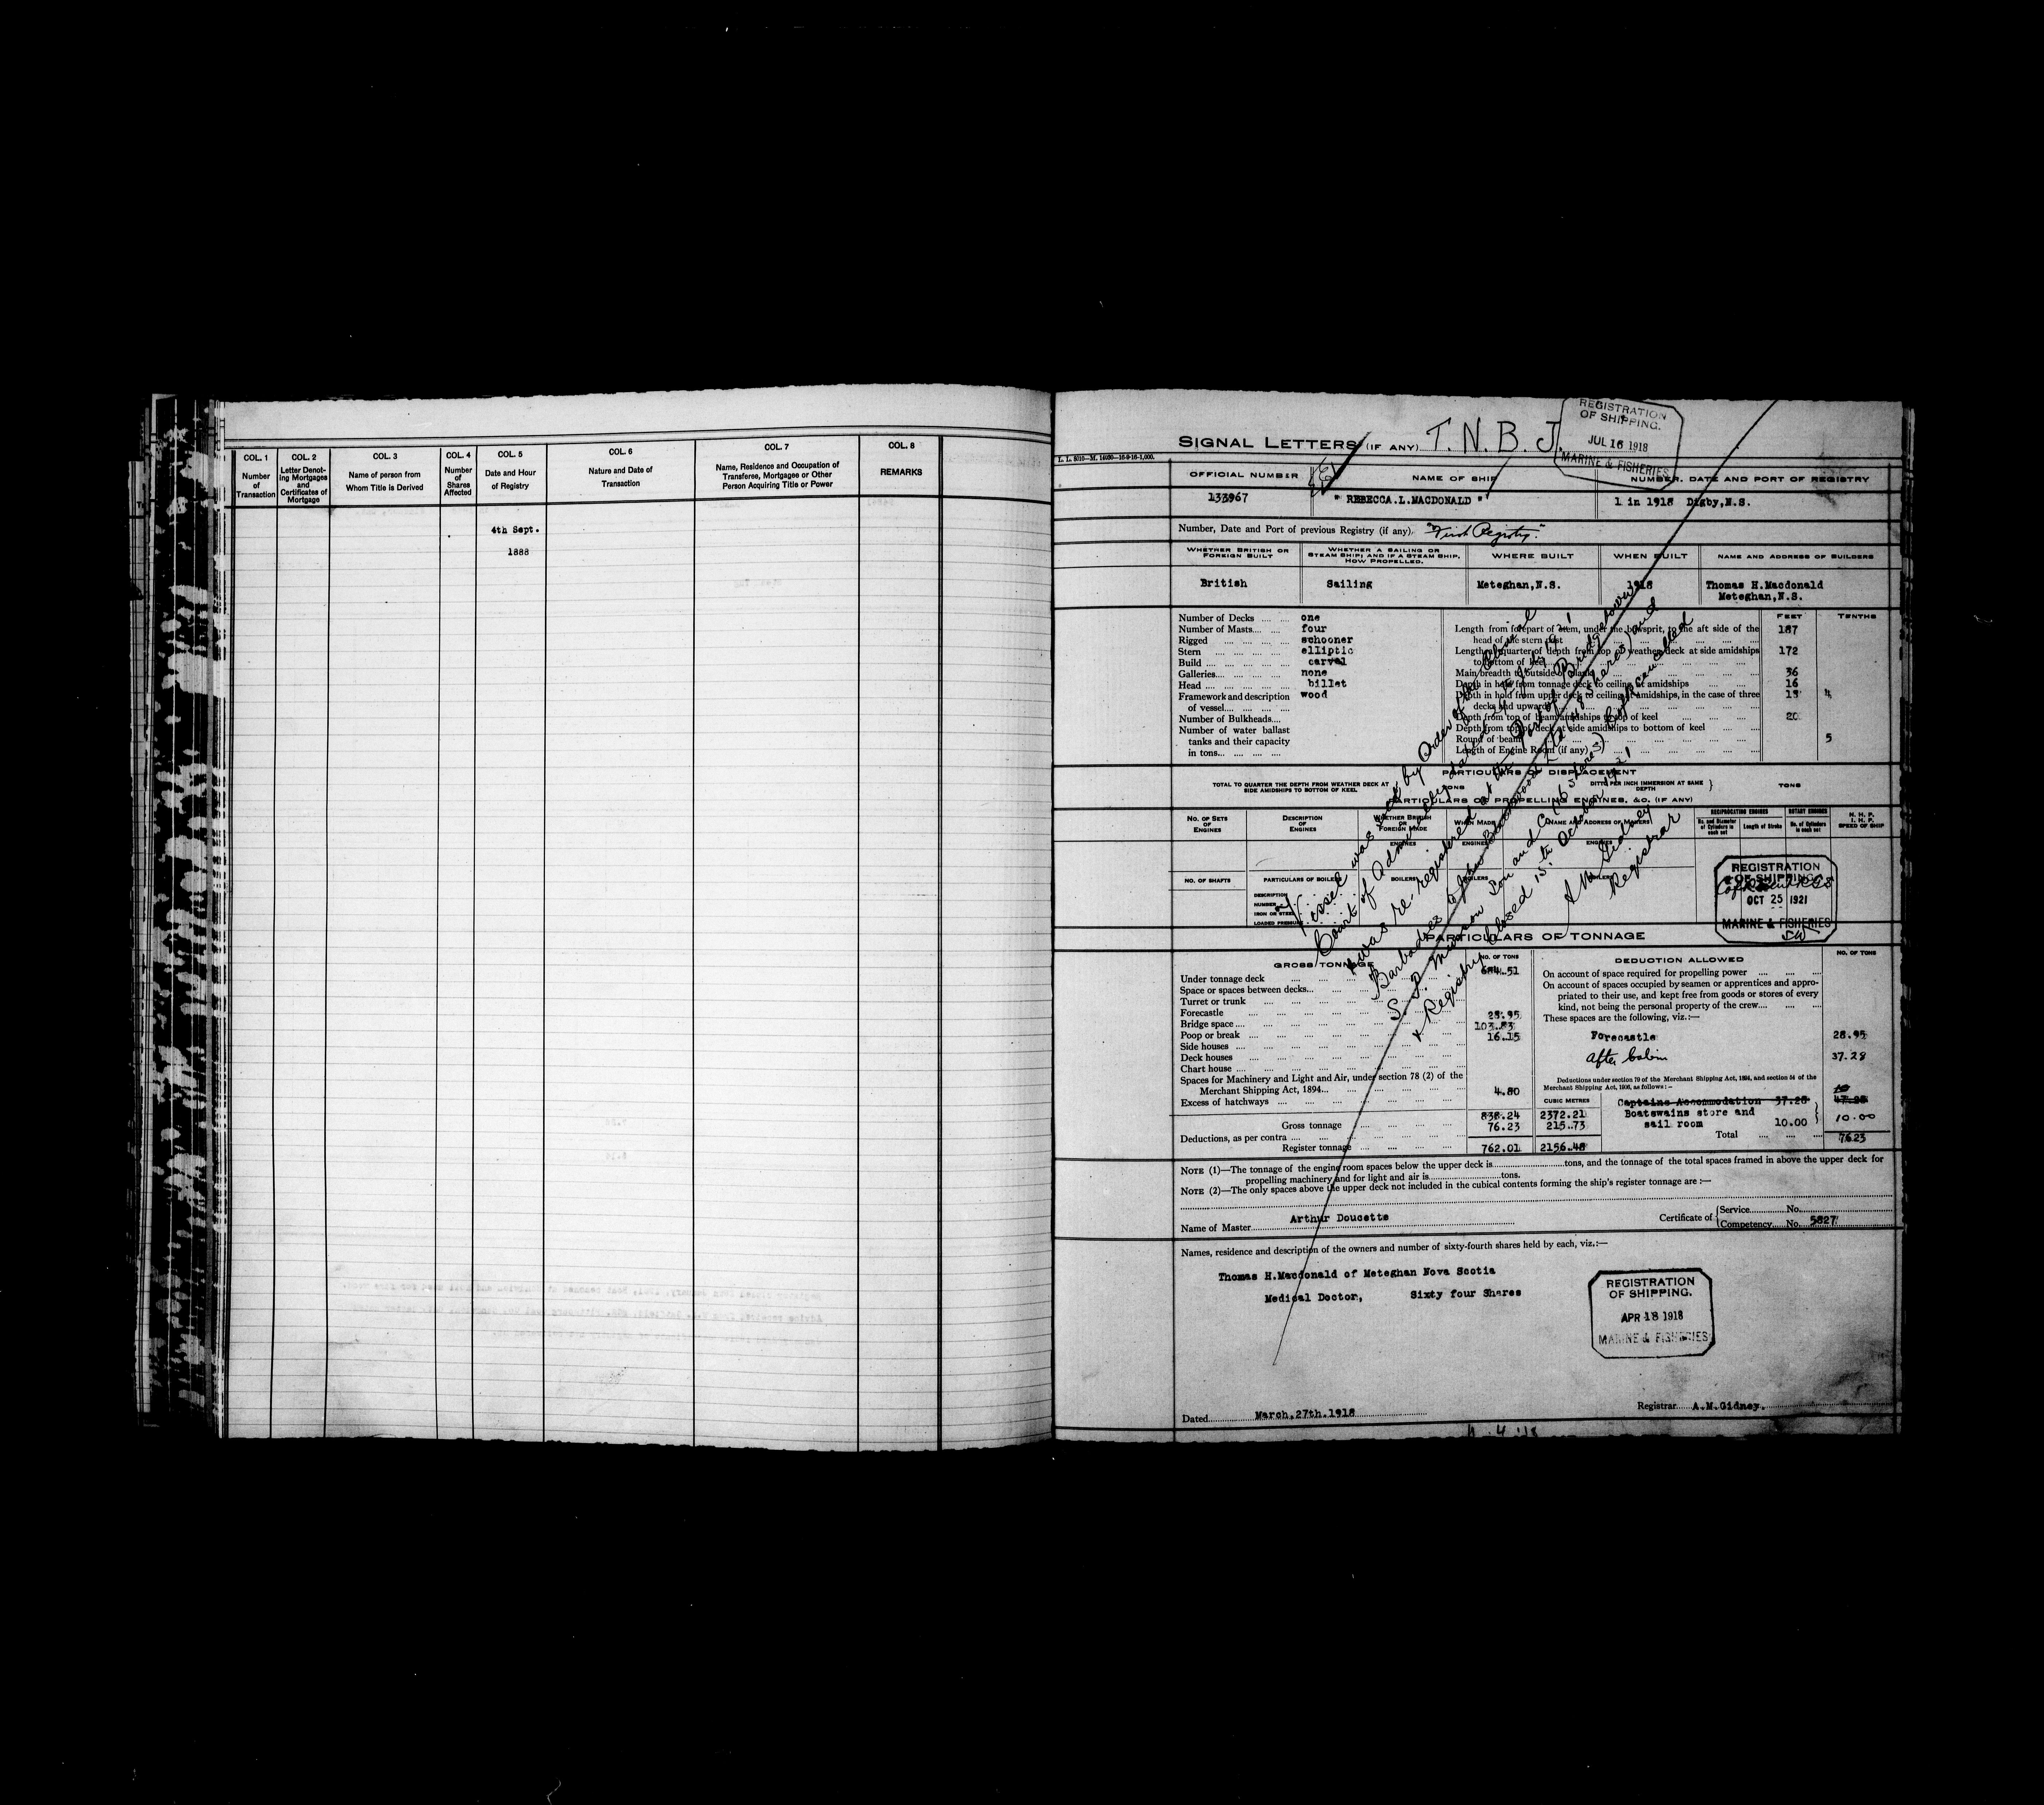 COL. 1
Number
of
Transaction
COL. 2
Letter Denot-
ing Mortgages
and
Certificates of
Mortgage
COL. 3
Name of person from
Whom Title is Derived
COL. 4
Number
of
Shares
Affected
COL. 5
Date and Hour
of Registry
COL. 6
Nature and Date of
Transaction
COL. 7
Name, Residence and Occupation of
Transferee, Mortgagee or Other
Person Acquiring Title or Power
COL. 8
REMARKS
4th Sept.
1888
SIGNAL LETTERS (IF ANY) T. N. B. J.
REGISTRATION
OF SHIPPING.
JUL 16 1918
MARINE & FISHERIES
OFFICIAL NUMBER
NAME OF SHIP
NUMBER, DATE AND PORT OF REGISTRY
133967
" REBECCA.L.MACDONALD "
1 in 1918 Digby,N.S.
Number, Date and Port of previous Registry (if any). "First Registry."
WHETHER BRITISH OR
FOREIGN BUILT
WHETHER A SAILING OR
STEAM SHIP; AND IF A STEAM SHIP,
HOW PROPELLED.
WHERE BUILT
WHEN BUILT
NAME AND ADDRESS OF BUILDERS
British
Sailing
Meteghan,N.S.
1918
Thomas H.Macdonald
Meteghan,N.S.
Number of Decks one
Number of Masts four
Rigged schooner
Stern elliptic
Build carvel
Galleries none
Head billet
Framework and description wood
of vessel
Number of Bulkheads
Number of water ballast
tanks and their capacity
in tons
FEET TENTHS
Length from forepart of stem, under the bowsprit, to the aft side of the 187
head of the stern post
Length at quarter of depth from top of weather deck at side amidships 172
to bottom of keel
Main breadth to outside of plank 36
Depth in hold from tonnage deck to ceiling at amidships 16
Depth in hold from upper deck to ceiling at amidships, in the case of three
decks and upwards
Depth from top of beam amidships to top of keel 20
Depth from top of deck at side amidships to bottom of keel
Round of beam 5
Length of Engine Room (if any)
PARTICULARS OF DISPLACEMENT
TOTAL TO QUARTER THE DEPTH FROM WEATHER DECK AT
SIDE AMIDSHIPS TO BOTTOM OF KEEL
TONS
DITTO PER INCH IMMERSION AT SAME
DEPTH
TONS
PARTICULARS OF PROPELLING ENGINES, &C. (IF ANY)
NO. OF SETS
OF
ENGINES
DESCRIPTION
OF
ENGINES
WHETHER BRITISH
OR
FOREIGN MADE
WHEN MADE
NAME AND ADDRESS OF MAKERS
RECIPROCATING ENGINES
No. and Diameter
of Cylinders in
each set
Length of Stroke
ROTARY ENGINES
No. of Cylinders
in each set
N. H. P.
I. H. P.
SPEED OF SHIP
ENGINES
ENGINES
ENGINES
NO. OF SHAFTS
PARTICULARS OF BOILERS
BOILERS
BOILERS
BOILERS
DESCRIPTION
NUMBER
IRON OR STEEL
LOADED PRESSURE
Vessel was sold by Order of the
Court of Admiralty
was re-registered at the Port of Bridgetown
Barbadoes
S. P. Musson Son and Co (16 shares)
Registry closed 15th October 1921
A M Gidney
Registrar
REGISTRATION
OF SHIPPING.
OCT 25 1921
MARINE & FISHERIES
PARTICULARS OF TONNAGE
GROSS TONNAGE
NO. OF TONS
Under tonnage deck 684.51
Space or spaces between decks
Turret or trunk
Forecastle 28.95
Bridge space 103.83
Poop or break 16.15
Side houses
Deck houses
Chart house
Spaces for Machinery and Light and Air, under section 78 (2) of the
Merchant Shipping Act, 1894 4.80
Excess of hatchways
CUBIC METRES
Gross tonnage 838.24 2372.21
Deductions, as per contra 76.23 215.73
Register tonnage 762.01 2156.48
DEDUCTION ALLOWED
NO. OF TONS
On account of space required for propelling power
On account of spaces occupied by seamen or apprentices and appro-
priated to their use, and kept free from goods or stores of every
kind, not being the personal property of the crew
These spaces are the following, viz.:—
Forecastle 28.95
After Cabin 37.28
Deductions under section 79 of the Merchant Shipping Act, 1894, and section 54 of the
Merchant Shipping Act, 1906, as follows:—
Captains Accommodation 37.28
Boatswains store and
sail room 10.00 10.00
Total 76.23
NOTE (1)—The tonnage of the engine room spaces below the upper deck is tons, and the tonnage of the total spaces framed in above the upper deck for
propelling machinery and for light and air is tons.
NOTE (2)—The only spaces above the upper deck not included in the cubical contents forming the ship's register tonnage are :—
Name of Master Arthur Doucette
Certificate of
Service No.
Competency No. 5827
Names, residence and description of the owners and number of sixty-fourth shares held by each, viz.:—
Thomas H.Macdonald of Meteghan Nova Scotia
Medical Doctor, Sixty four Shares
REGISTRATION
OF SHIPPING.
APR 18 1918
MARINE & FISHERIES
Dated March,27th.1918
Registrar A.M.Gidney.